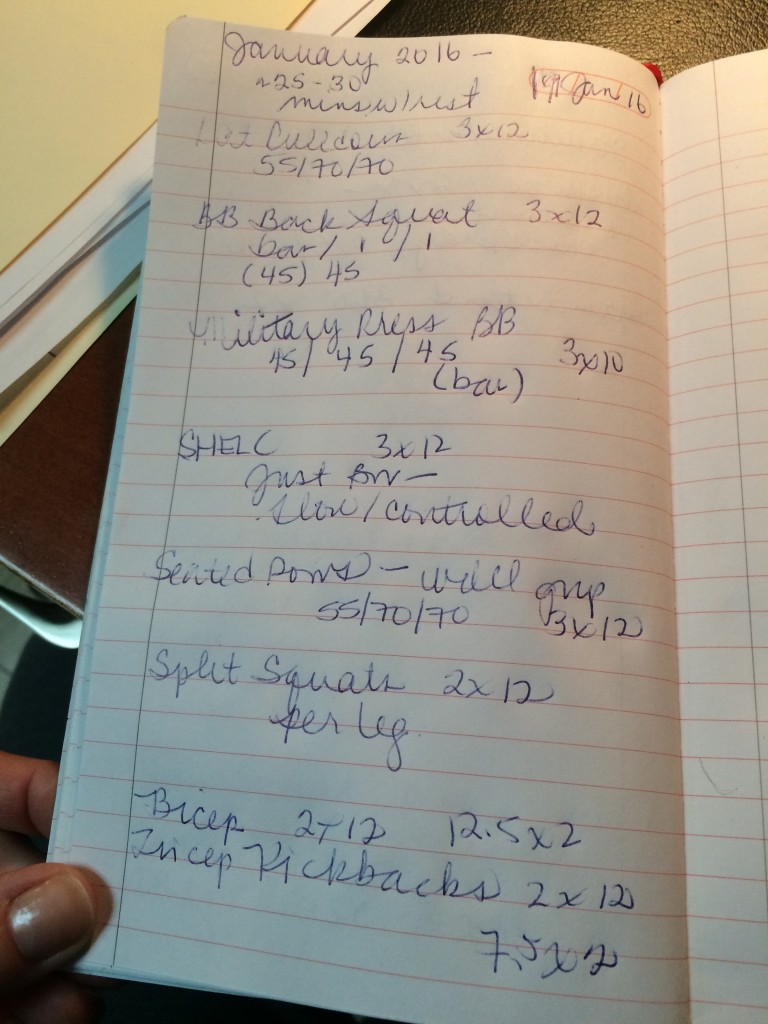 January 2016 -
~25-30
mins w/ rest
19 Jan 16
Lat Pulldown 3x12
55/70/70
BB Back Squat 3x12
bar / 1 / 1
(45) 45
Military Press BB
45/ 45 / 45 3x10
(bar)
SHELC 3x12
Just BW -
slow/controlled
Seated Rows - wide grip
55/70/70 3x12
Split Squats 2x12
per leg.
Bicep 2x12 12.5x2
Tricep Kickbacks 2x12
7.5x2